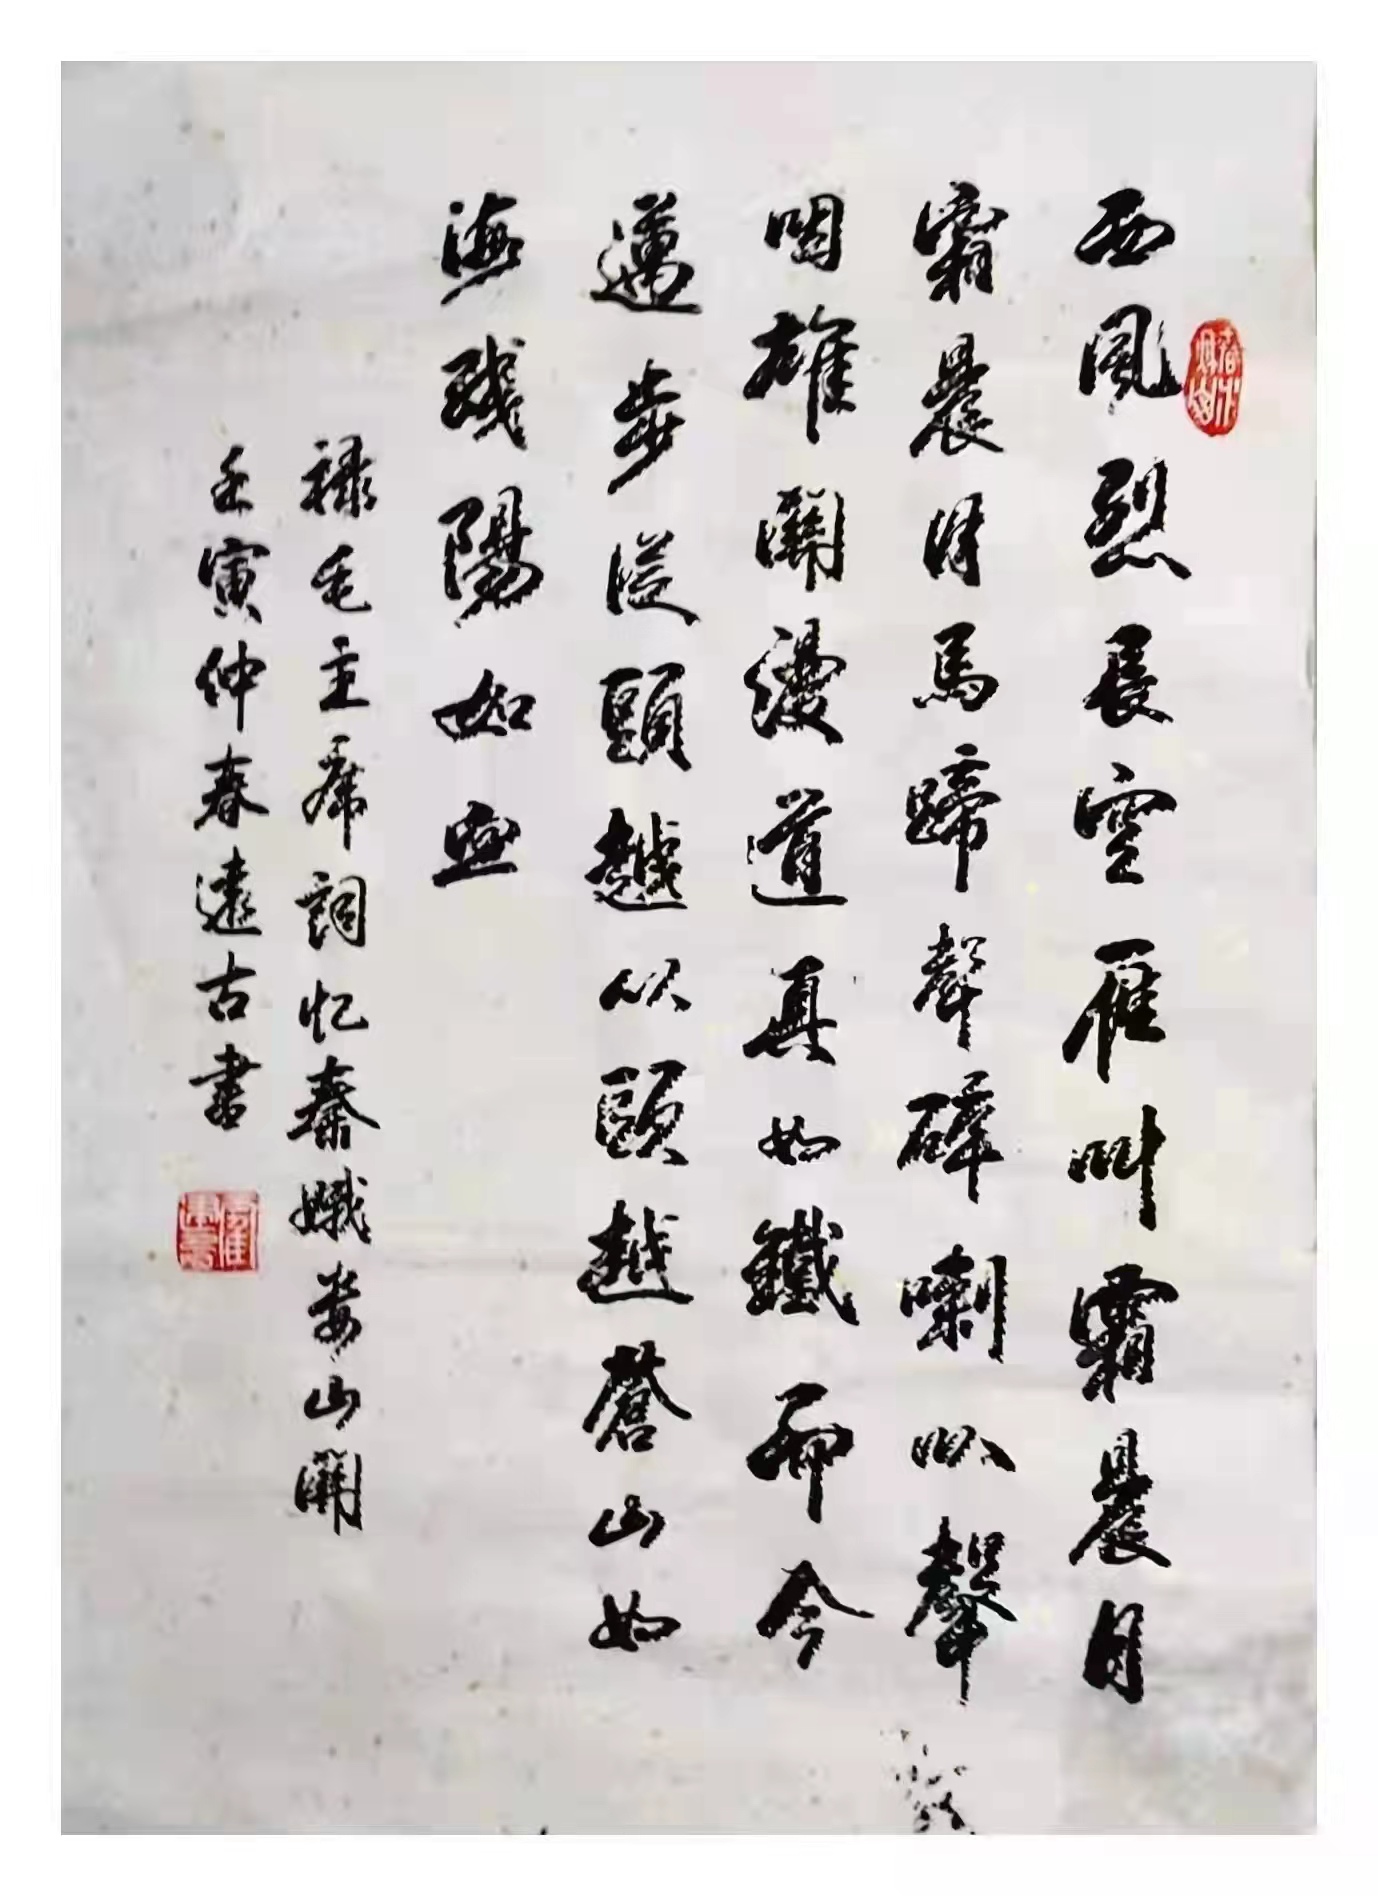 西風烈長空雁叫霜晨月
霜晨月馬蹄聲碎喇叭聲
咽雄關漫道真如鐵而今
邁步從頭越从頭越蒼山如
海殘陽如血
禄毛主席詞忆秦娥娄山關
壬寅仲春遠古書